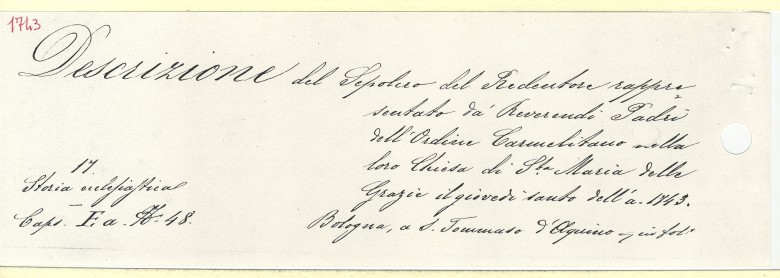 1743
Descrizione del Sepolcro del Redentore rappre
sentato da' Reverendi Padri
dell'Ordine Carmelitano nella
loro Chiesa di Sta Maria delle
Grazie il giovedì santo dell'a. 1743.
Bologna, a S. Tommaso d'Aquino in fol.
17.
Storia ecclesiastica
Caps. I. a. 48.